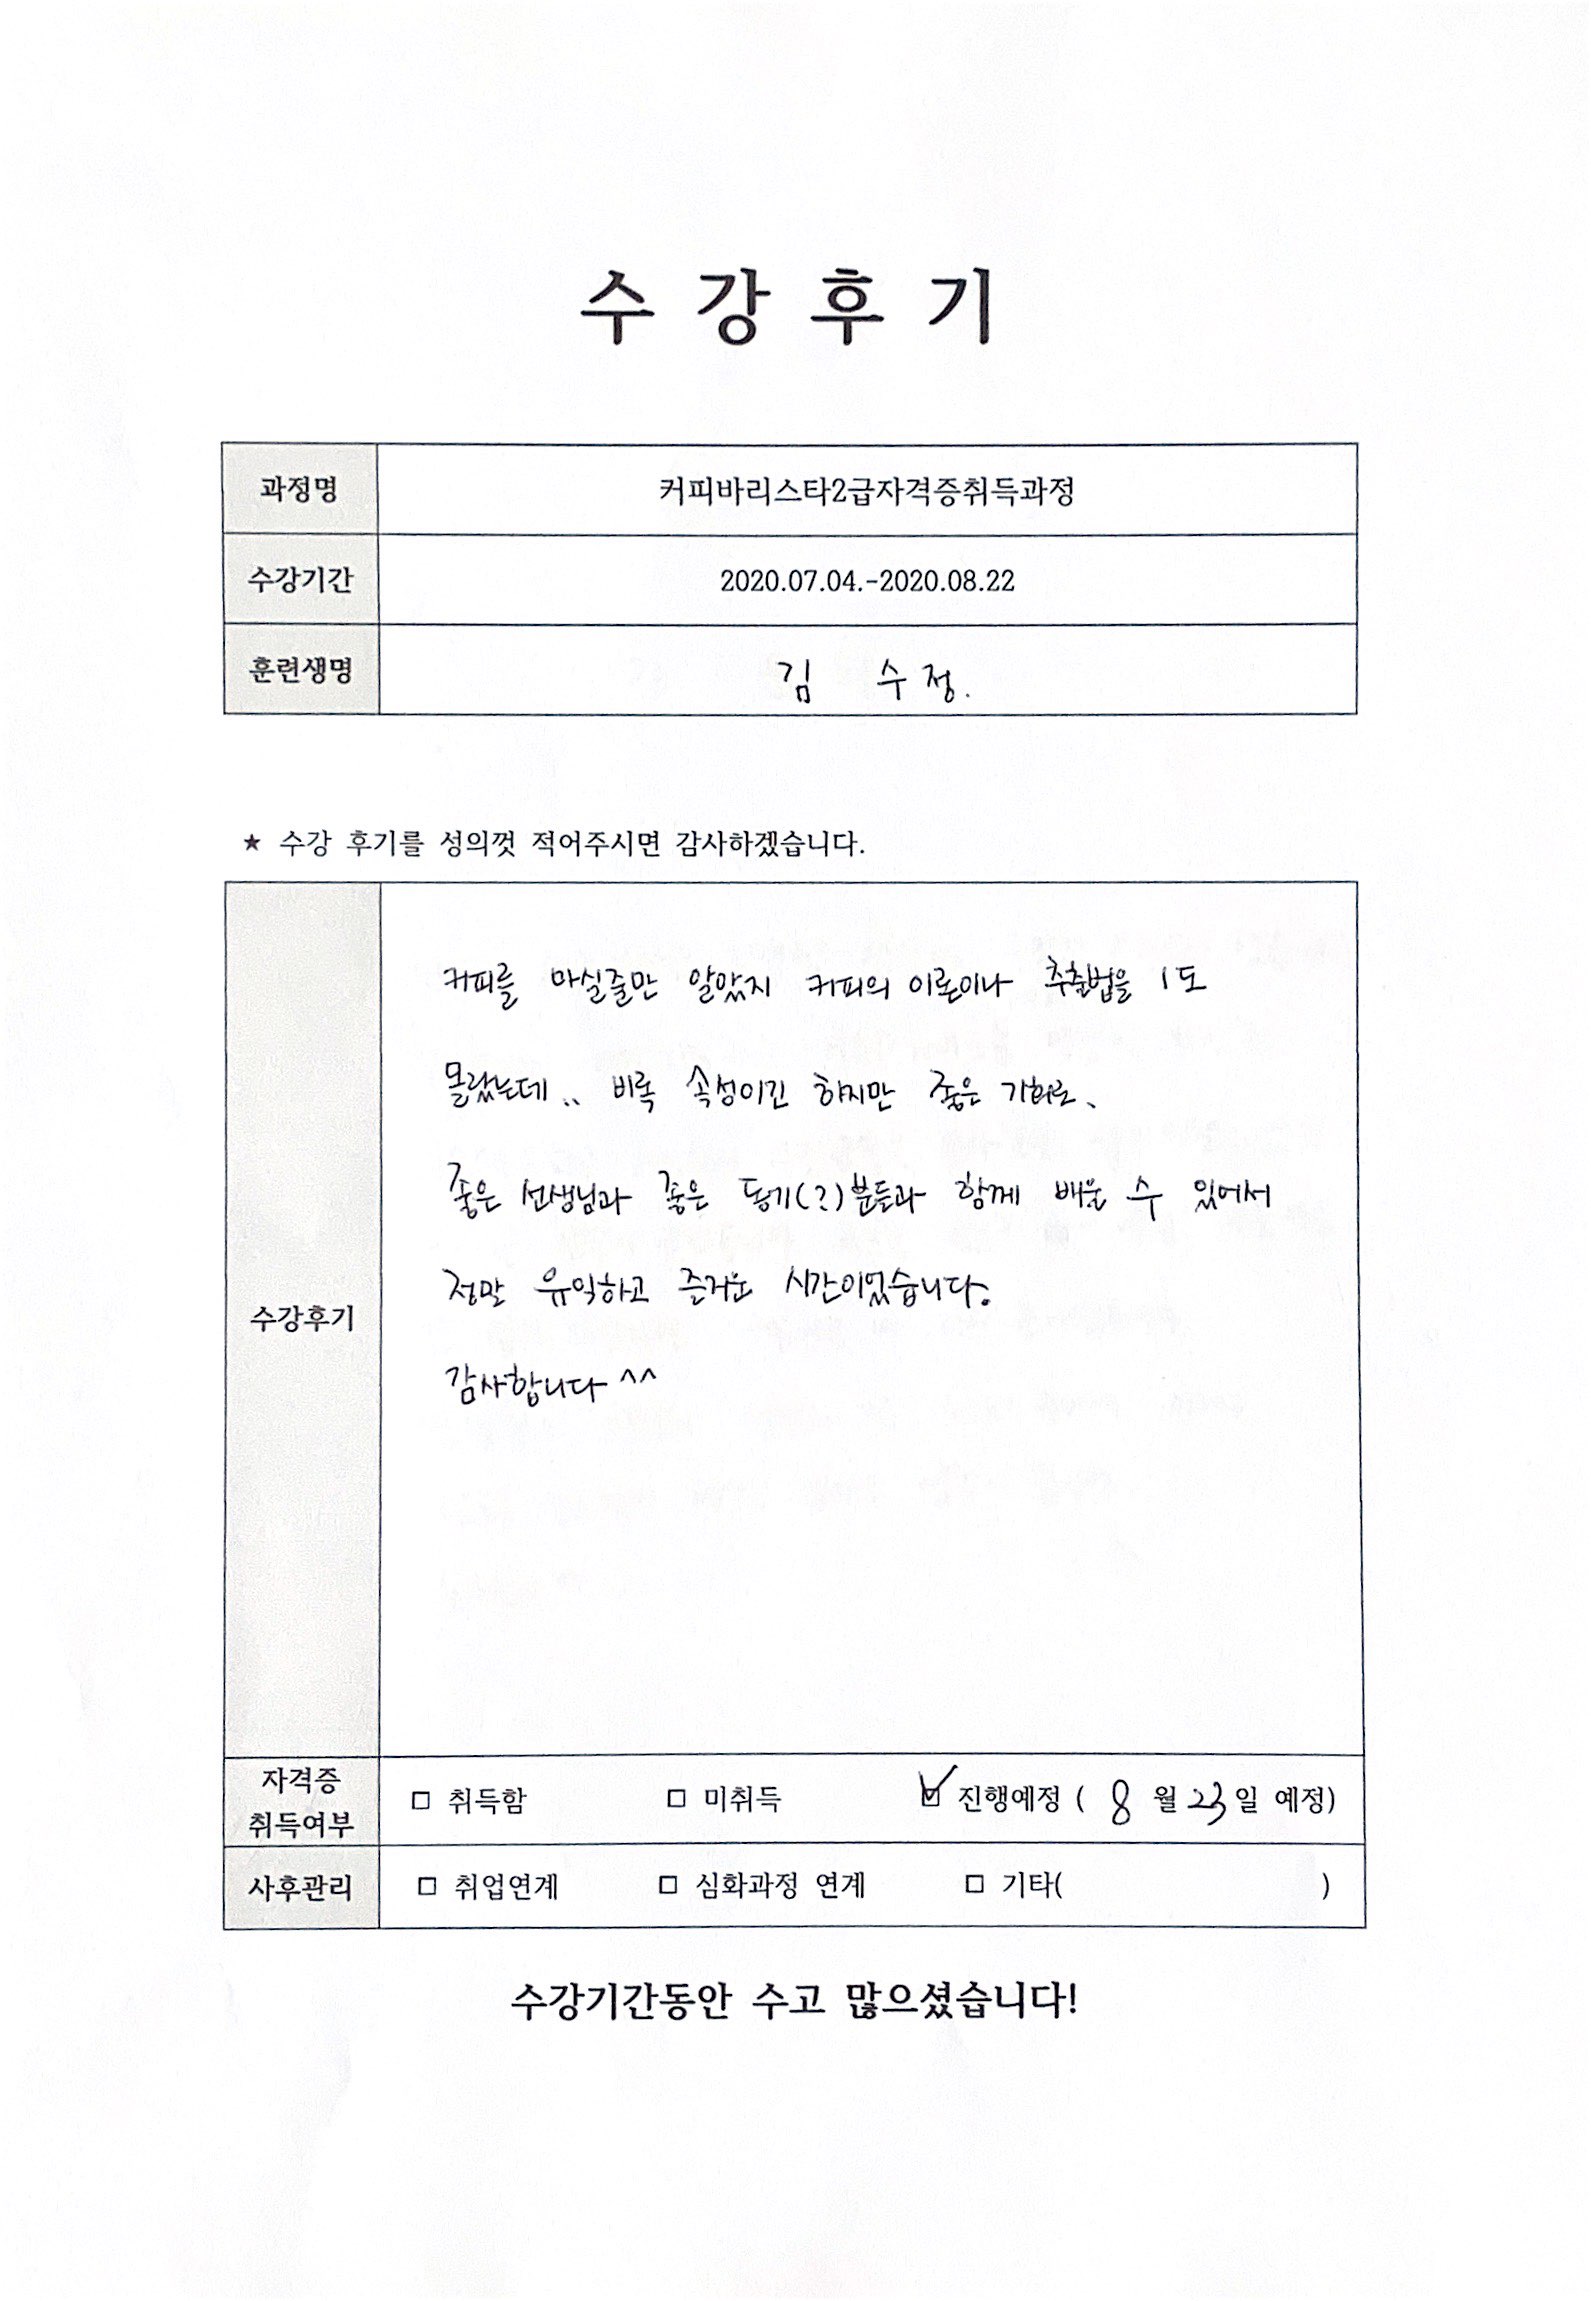 수 강 후 기
과정명 커피바리스타2급자격증취득과정
수강기간 2020.07.04.-2020.08.22
훈련생명 김 수정.
★ 수강 후기를 성의껏 적어주시면 감사하겠습니다.
커피를 마실줄만 알았지 커피의 이론이나 추출법을 1도
몰랐는데.. 비록 속성이긴 하지만 좋은 기회로,
좋은 선생님과 좋은 동기(?)분들과 함께 배울 수 있어서
수강후기
정말 유익하고 즐거운 시간이었습니다.
감사합니다 ^^
자격증
취득여부
□ 취득함 □ 미취득 ☑ 진행예정 ( 8 월 23 일 예정)
사후관리 □ 취업연계 □ 심화과정 연계 □ 기타( )
수강기간동안 수고 많으셨습니다!